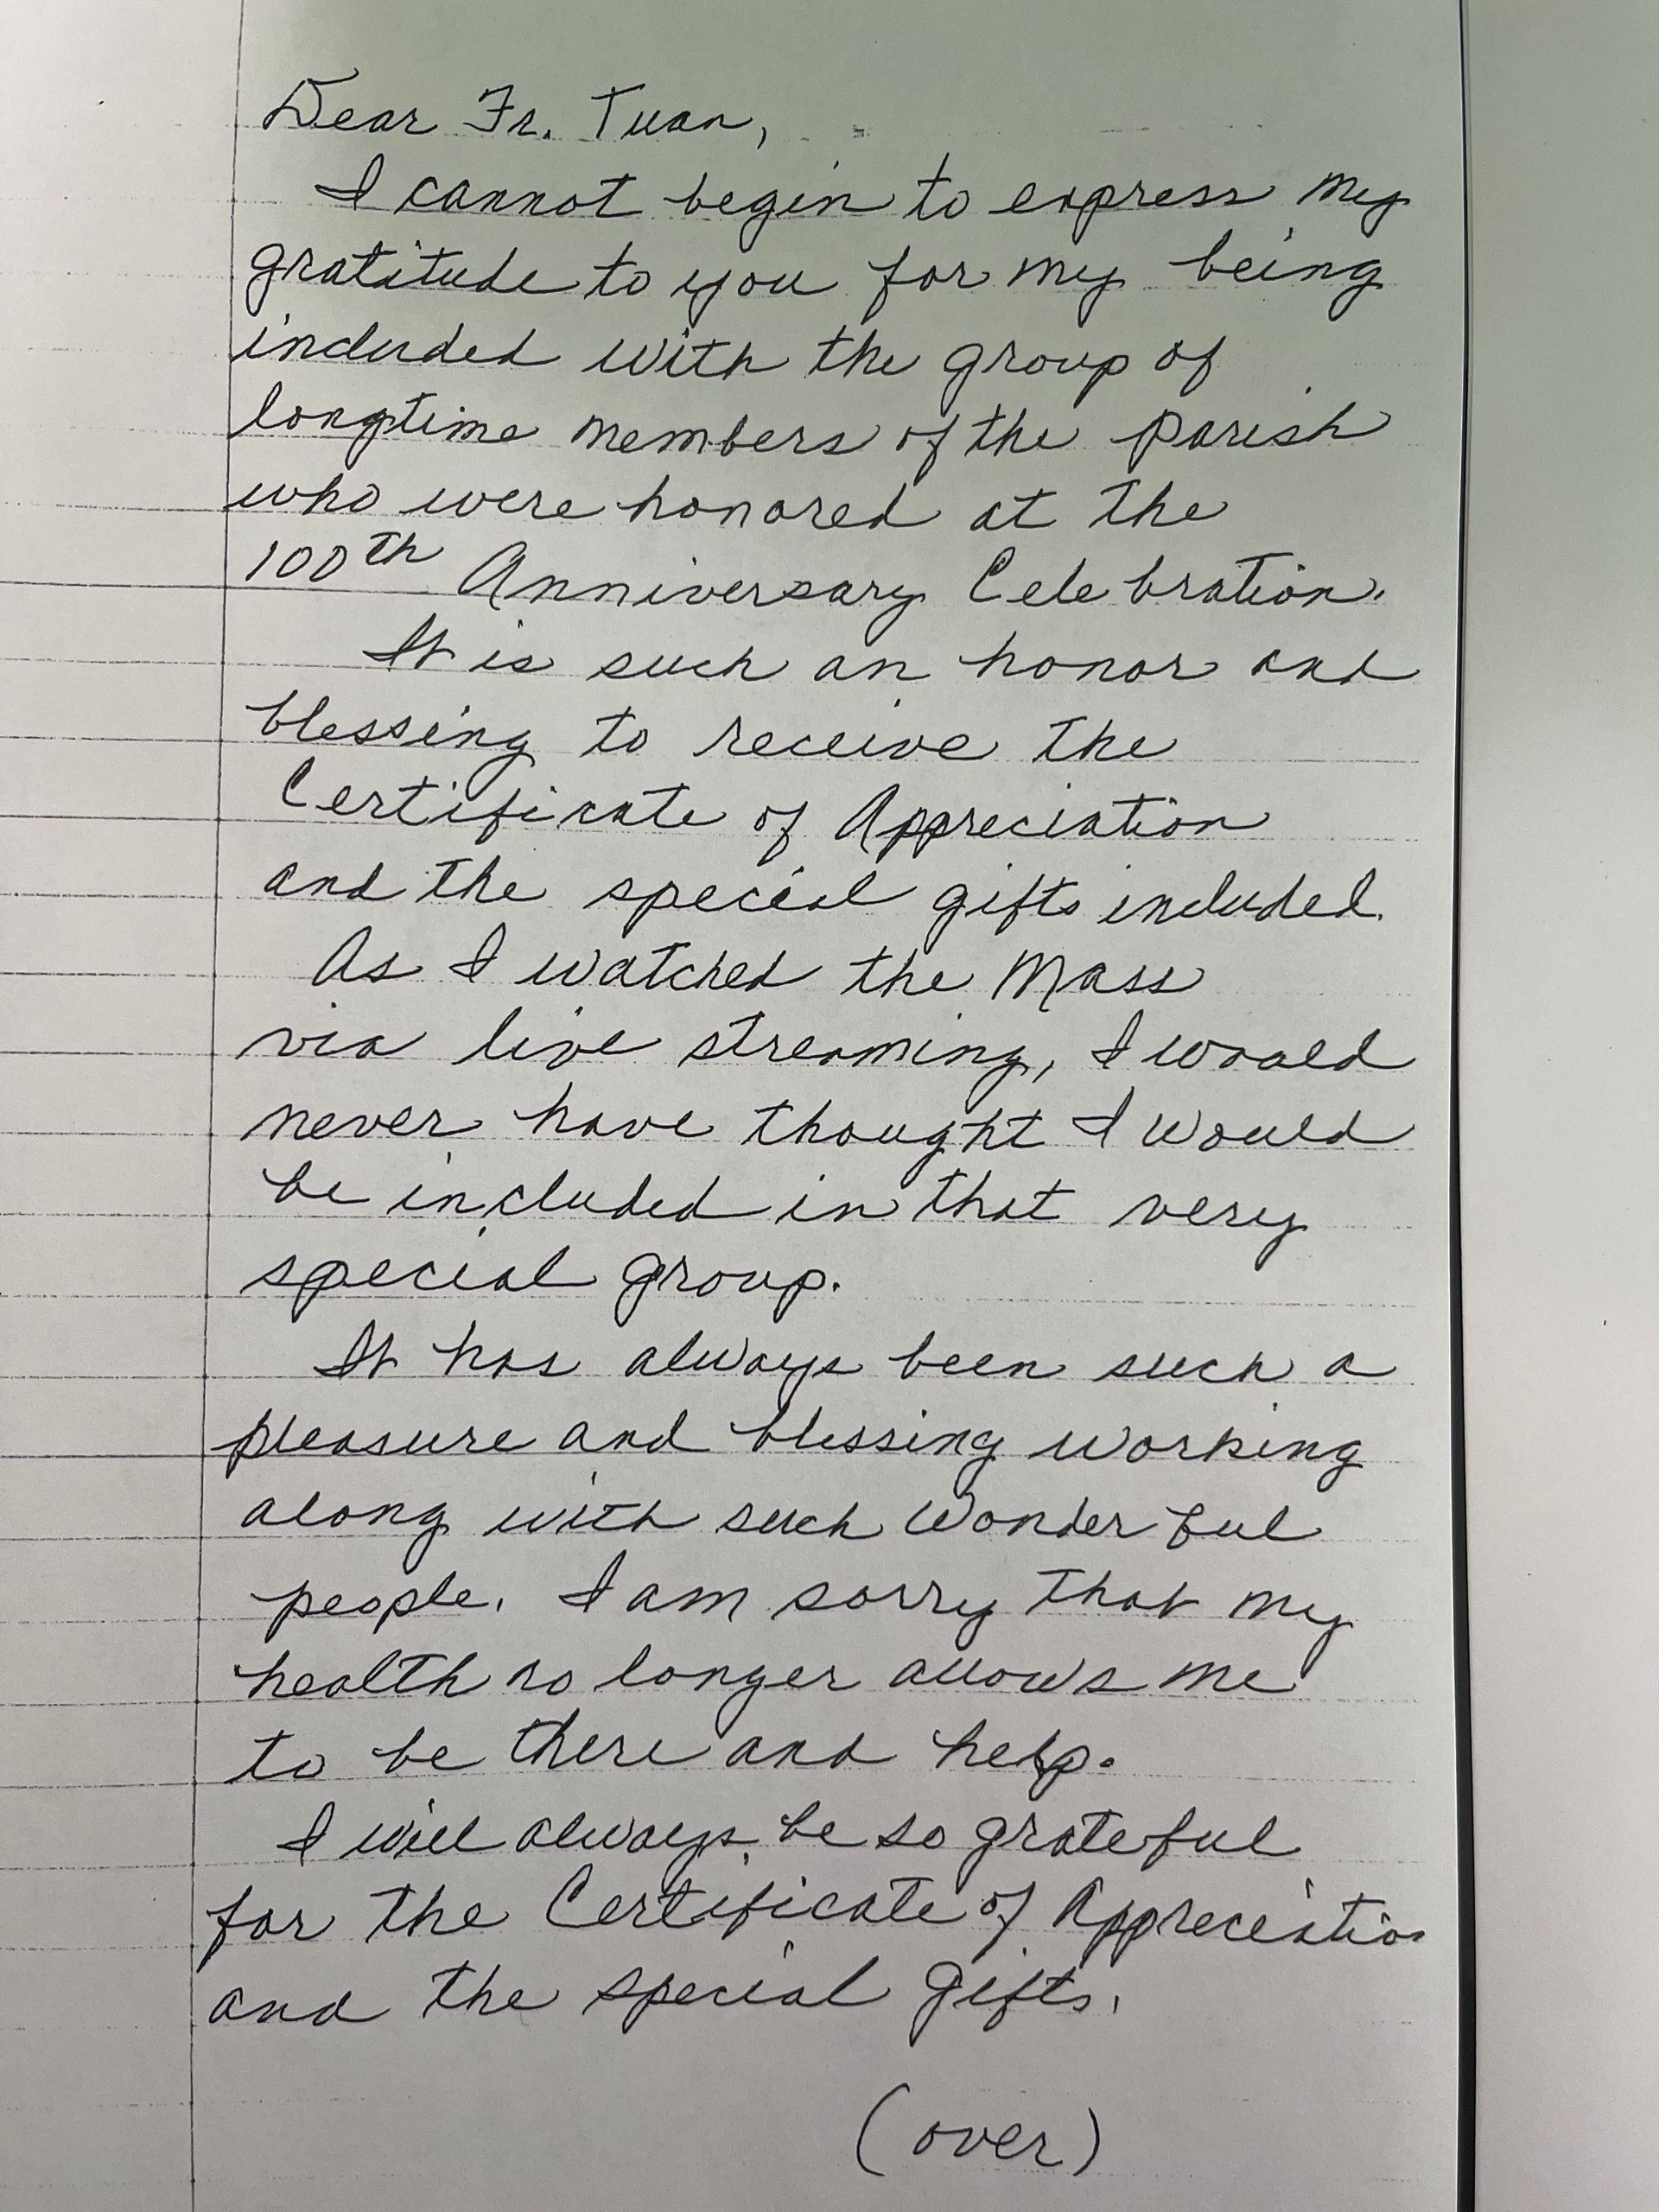 Dear Fr. Tuan,
I cannot begin to express my
gratitude to you for my being
included with the group of
longtime members of the parish
who were honored at the
100th Anniversary Celebration.
It is such an honor and
blessing to receive the
Certificate of Appreciation
and the special gifts included.
As I watched the Mass
via live streaming, I would
never have thought I would
be included in that very
special group.
It has always been such a
pleasure and blessing working
along with such wonderful
people. I am sorry that my
health no longer allows me
to be there and help.
I will always be so grateful
for the Certificate of Appreciation
and the special gifts.
(over)